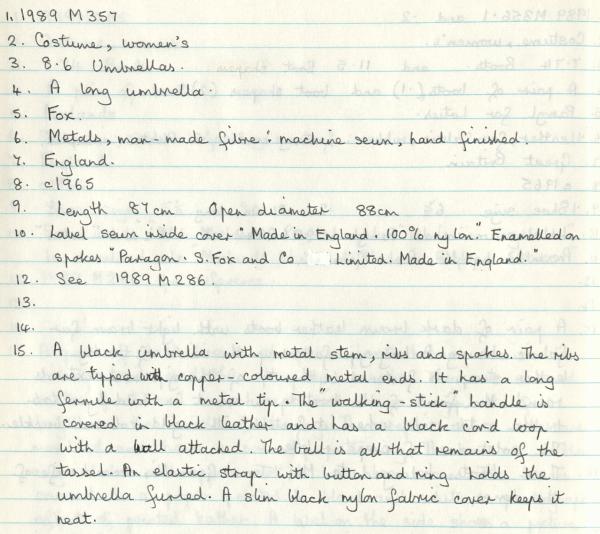 1. 1989 M 357
2. Costume, women's
3. 8.6 Umbrellas.
4. A long umbrella.
5. Fox.
6. Metals, man-made fibre : machine sewn, hand finished.
7. England.
8. c1965
9. Length 87cm Open diameter 88cm
10. Label sewn inside cover "Made in England. 100% nylon." Enamelled on
spokes "Paragon. S. Fox and Co Limited. Made in England."
12. See 1989 M 286.
13.
14.
15. A black umbrella with metal stem, ribs and spokes. The ribs
are tipped with copper-coloured metal ends. It has a long
ferrule with a metal tip. The "walking-stick" handle is
covered in black leather and has a black cord loop
with a ball attached. The ball is all that remains of the
tassel. An elastic strap with button and ring holds the
umbrella furled. A slim black nylon fabric cover keeps it
neat.